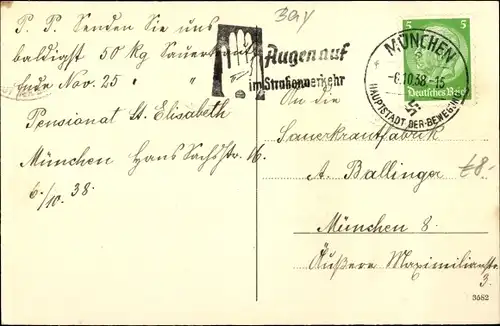 P. P. Senden Sie uns
baldigst 50 kg Sauerkraut
Ende Nov. 25 " "
Pensionat St. Elisabeth
München Hans Sachsstr. 16.
6./10. 38.
Bay
Augen auf
im Straßenverkehr
MÜNCHEN
-6.10.38-15
HAUPTSTADT DER BEWEGUNG
5 5
Deutsches Reich
An die
Sauerkrautfabrik
A. Ballinger
München 8.
Äußere Maximilianstr.
3.
3682